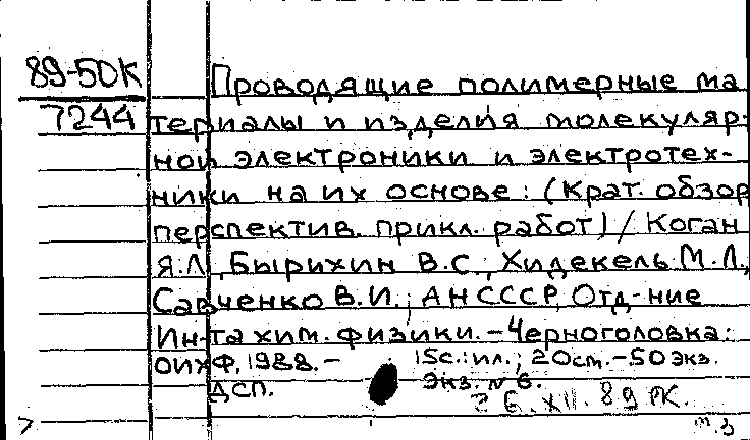 89-50К
7244
Проводящие полимерные ма
териалы и изделия молекуляр-
ной электроники и электротех-
ники на их основе: (Крат. обзор
перспектив. прикл. работ) / Коган
Я.Л., Бырихин В.С., Хидекель М.Л.,
Савченко В.И.; АН СССР, Отд-ние
Ин-та хим. физики. - Черноголовка:
ОИХФ, 1988. - 15с.: ил.; 20 см. - 50 экз.
ДСП. Экз. № 6.
26.XII.89 РК.
м.з